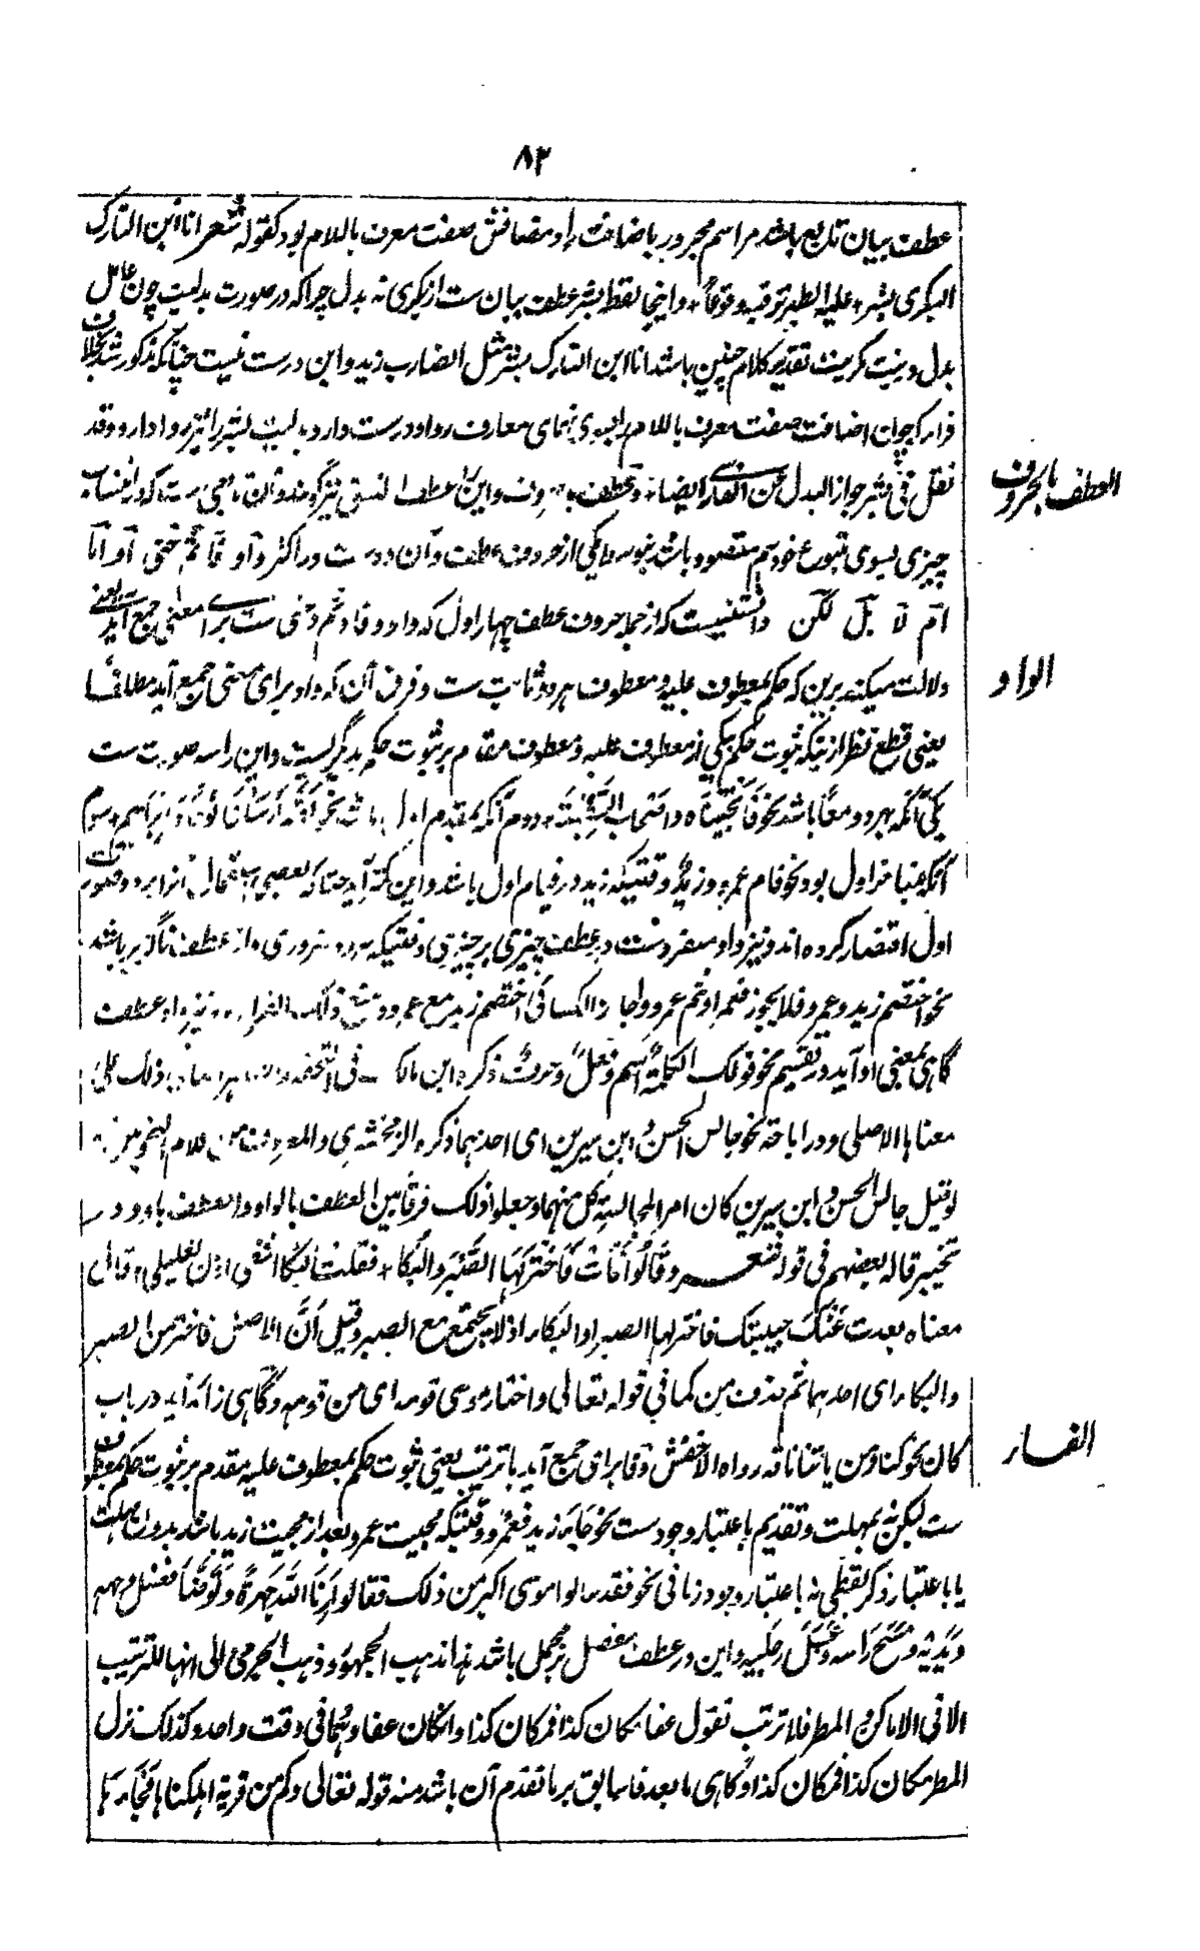 ۸۲
عطف بیان تابع باشد مر اسم مجرور باضافت را و مضافش صفت معرف باللام بود کقوله شعر انا ابن التارک
البکری بشر، علیه الطیر ترقبه وقوعا، و اینجا لفظ بشر عطف بیان ست از بکری نه بدل چرا که در صورت بدلیت چون عامل
بدل در نیت تقدیر کلام چنین باشد انا ابن التارک بشر مثل الضارب زید و این درست نیست چنانکه مذکور شد بخلاف
فرا که چون اضافت صفت معرف باللام را بسوی همای معارف روا و درست دارد بدلیت بشر را نیز روا دارد و قد
نقل فی بشر جواز البدل عن الفارسی ایضا و عطف بحروف و این را عطف النسق نیز گویند و آن تابعی ست که
چیزی بسوی متبوع خود هم مقصود باشد بتوسط یکی از حروف عطف و آن ده ست در اکثر واو فا ثم حتی او اما
ام لا بل لکن دانستنیست که از جمله حروف عطف چهار اول که واو و فا و ثم و حتی ست برای معنی جمع آید یعنی
دلالت میکند برین که حکم بمعطوف علیه و معطوف هر دو ثابت ست و فرق آن که واو برای معنی جمع آید مطلقا
یعنی قطع نظر از اینکه ثبوت حکم یکی از معطوف علیه و معطوف مقدم بر ثبوت حکم دیگریست و این را سه صورت ست
یکی آنکه هر دو معا باشد نحو فانجیناه و اصحاب السفینة، دوم آنکه مقدم اول باشد نحو لقد ارسلنا نوحا و ابراهیم، سوم
آنکه متاخر اول بود نحو قام عمرو و زید وقتیکه زید در قیام اول باشد و این کم آید چنانکه بعضی استعمال آنرا بر دو صورت
اول اقتصار کرده اند و نیز واو منفردست در عطف چیزی بر چیزی وقتیکه ضروری و از عطف ناگزیر باشد
نحو اختصم زید و عمرو فلا یجوز فعمرو او ثم عمرو و اجاز الکسائی اختصم زید مع عمرو و منع ذلک الفراء و نیز واو عطف
گاهی بمعنی او آید در تقسیم نحو قولک الکلمة اسم و فعل و حرف ذکره ابن مالک فی التحفه ذلک علی
معناها الاصلی و در اباحة نحو جالس الحسن و ابن سیرین ای احدهما ذکره الزمخشری و المعروف من کلام النحویین
لو قیل جالس الحسن و ابن سیرین کان امرا لمجالسة کل منهما و جعلوا ذلک فرقا بین العطف بالواو و العطف باو و در
تخییر قاله بعضهم فی قوله شعر و قالوا نأت فاختر لها الصبر و البکا، فقلت البکا اشفی اذن لغلیلی، و قال
معناه بعدت عنک حبیبتک فاختر لها الصبر او البکاء اذ لا یجتمع مع الصبر و قیل ان الاصل فاختر من الصبر
و البکاء ای احدهما ثم حذف من کما فی قوله تعالی و اختار موسی قومه ای من قومه و گاهی زائد آید در باب
کان نحو کنا و من یاتنا ناته رواه الاخفش و فا برای جمع آید با ترتیب یعنی ثبوت حکم بمعطوف علیه مقدم بر ثبوت حکم بمعطوف
ست لیکن نه بمهلت و تقدیم باعتبار وجود ست نحو جاء زید فعمرو وقتیکه مجیت عمرو بعد از مجیت زید باشد بدون مهلت
یا باعتبار ذکر لفظی نه باعتبار وجود زمانی نحو فقد سالوا موسی اکبر من ذلک فقالوا ارنا الله جهرة و توضأ فغسل وجهه
و یدیه و مسح راسه و غسل رجلیه و این در عطف مفصل بر مجمل باشد هذا مذهب الجمهور و ذهب الجرمی الی انها للترتیب
الا فی الاماکن و المطر فلا ترتیب تقول عفا مکان کذا فمکان کذا و ان کان عفاؤهما فی وقت واحد و کذلک نزل
المطر مکان کذا فمکان کذا و گاهی ما بعد فا سابق بر ما تقدم آن باشد منه قوله تعالی و کم من قریة اهلکناها فجاءها
العطف بالحروف
الواو
الفاء